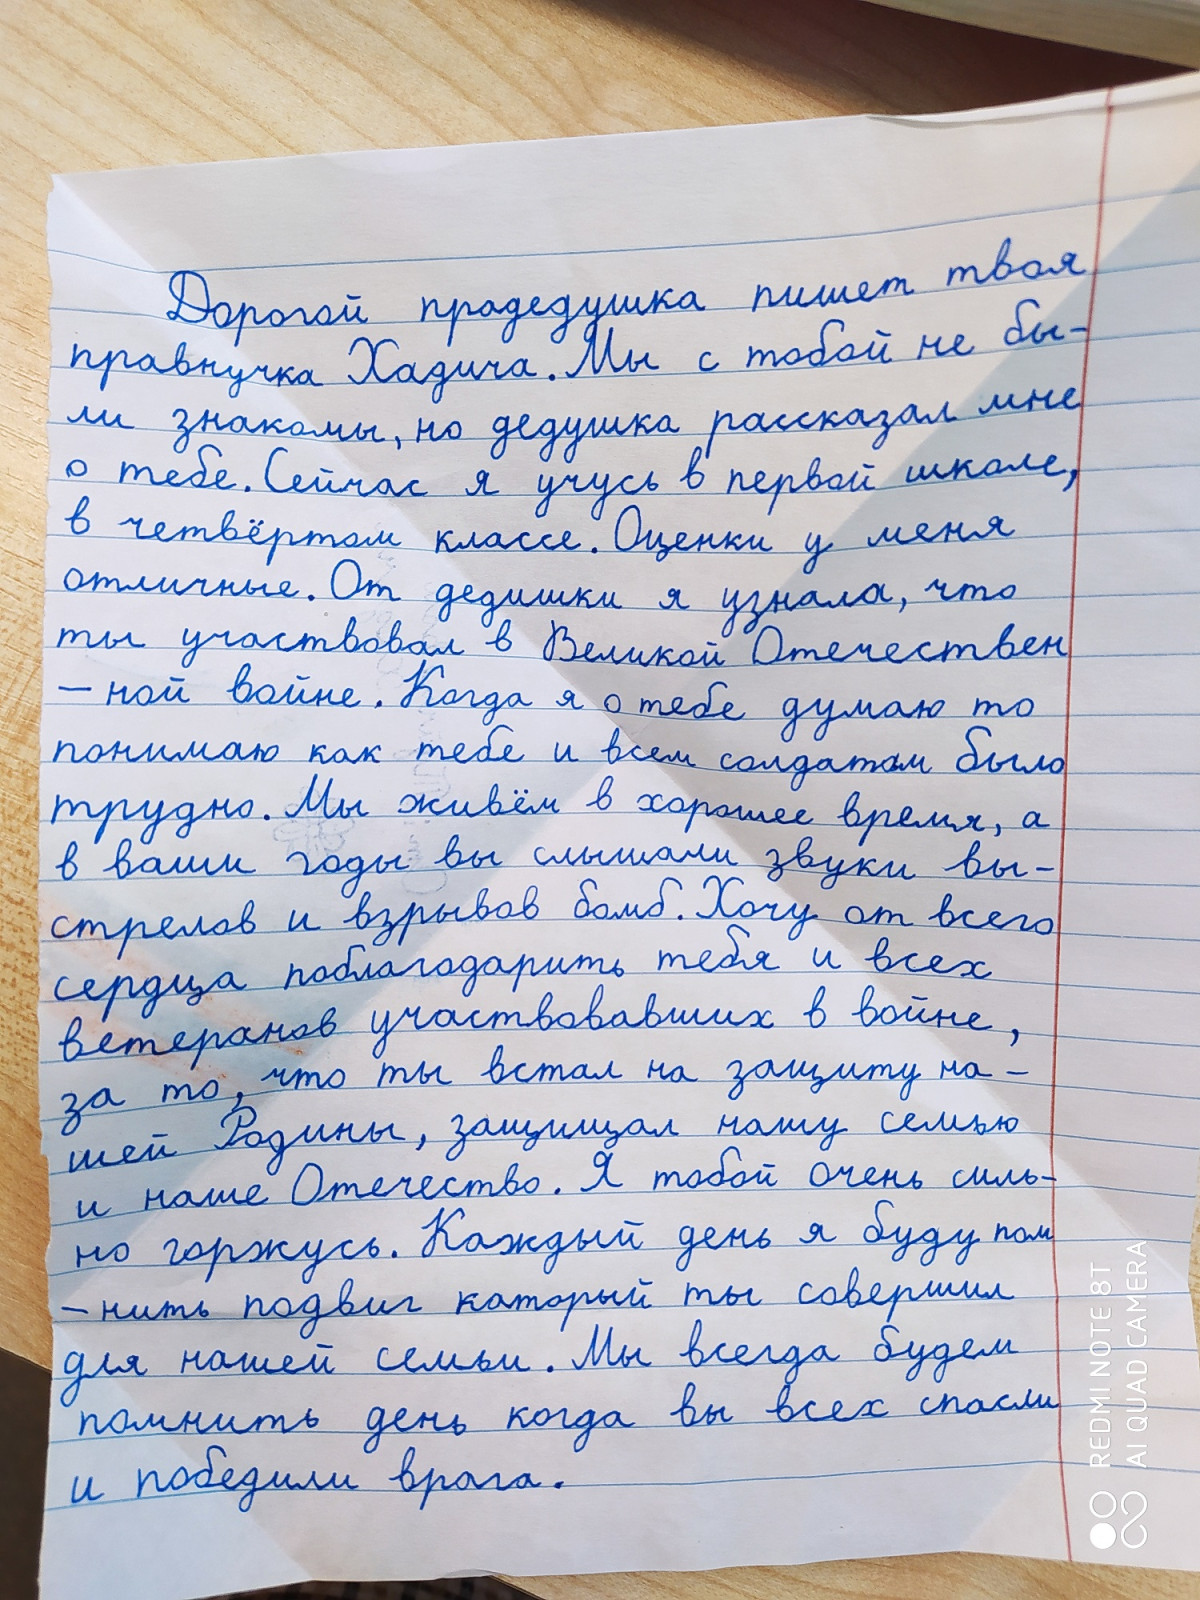 Дорогой прадедушка пишет твоя
правнучка Хадича. Мы с тобой не бы-
ли знакомы, но дедушка рассказал мне
о тебе. Сейчас я учусь в первой школе,
в четвёртом классе. Оценки у меня
отличные. От дедишки я узнала, что
ты участвовал в Великой Отечествен
-ной войне. Когда я о тебе думаю то
понимаю как тебе и всем солдатам было
трудно. Мы живём в хорошее время, а
в ваши годы вы слышали звуки вы-
стрелов и взрывов бомб. Хочу от всего
сердца поблагодарить тебя и всех
ветеранов участвовавших в войне,
за то, что ты встал на защиту на-
шей Родины, защищал нашу семью
и наше Отечество. Я тобой очень силь-
но горжусь. Каждый день я буду пом
-нить подвиг каторый ты совершил
для нашей семьи. Мы всегда будем
помнить день когда вы всех спасли
и победили врага.
REDMI NOTE 8T
AI QUAD CAMERA